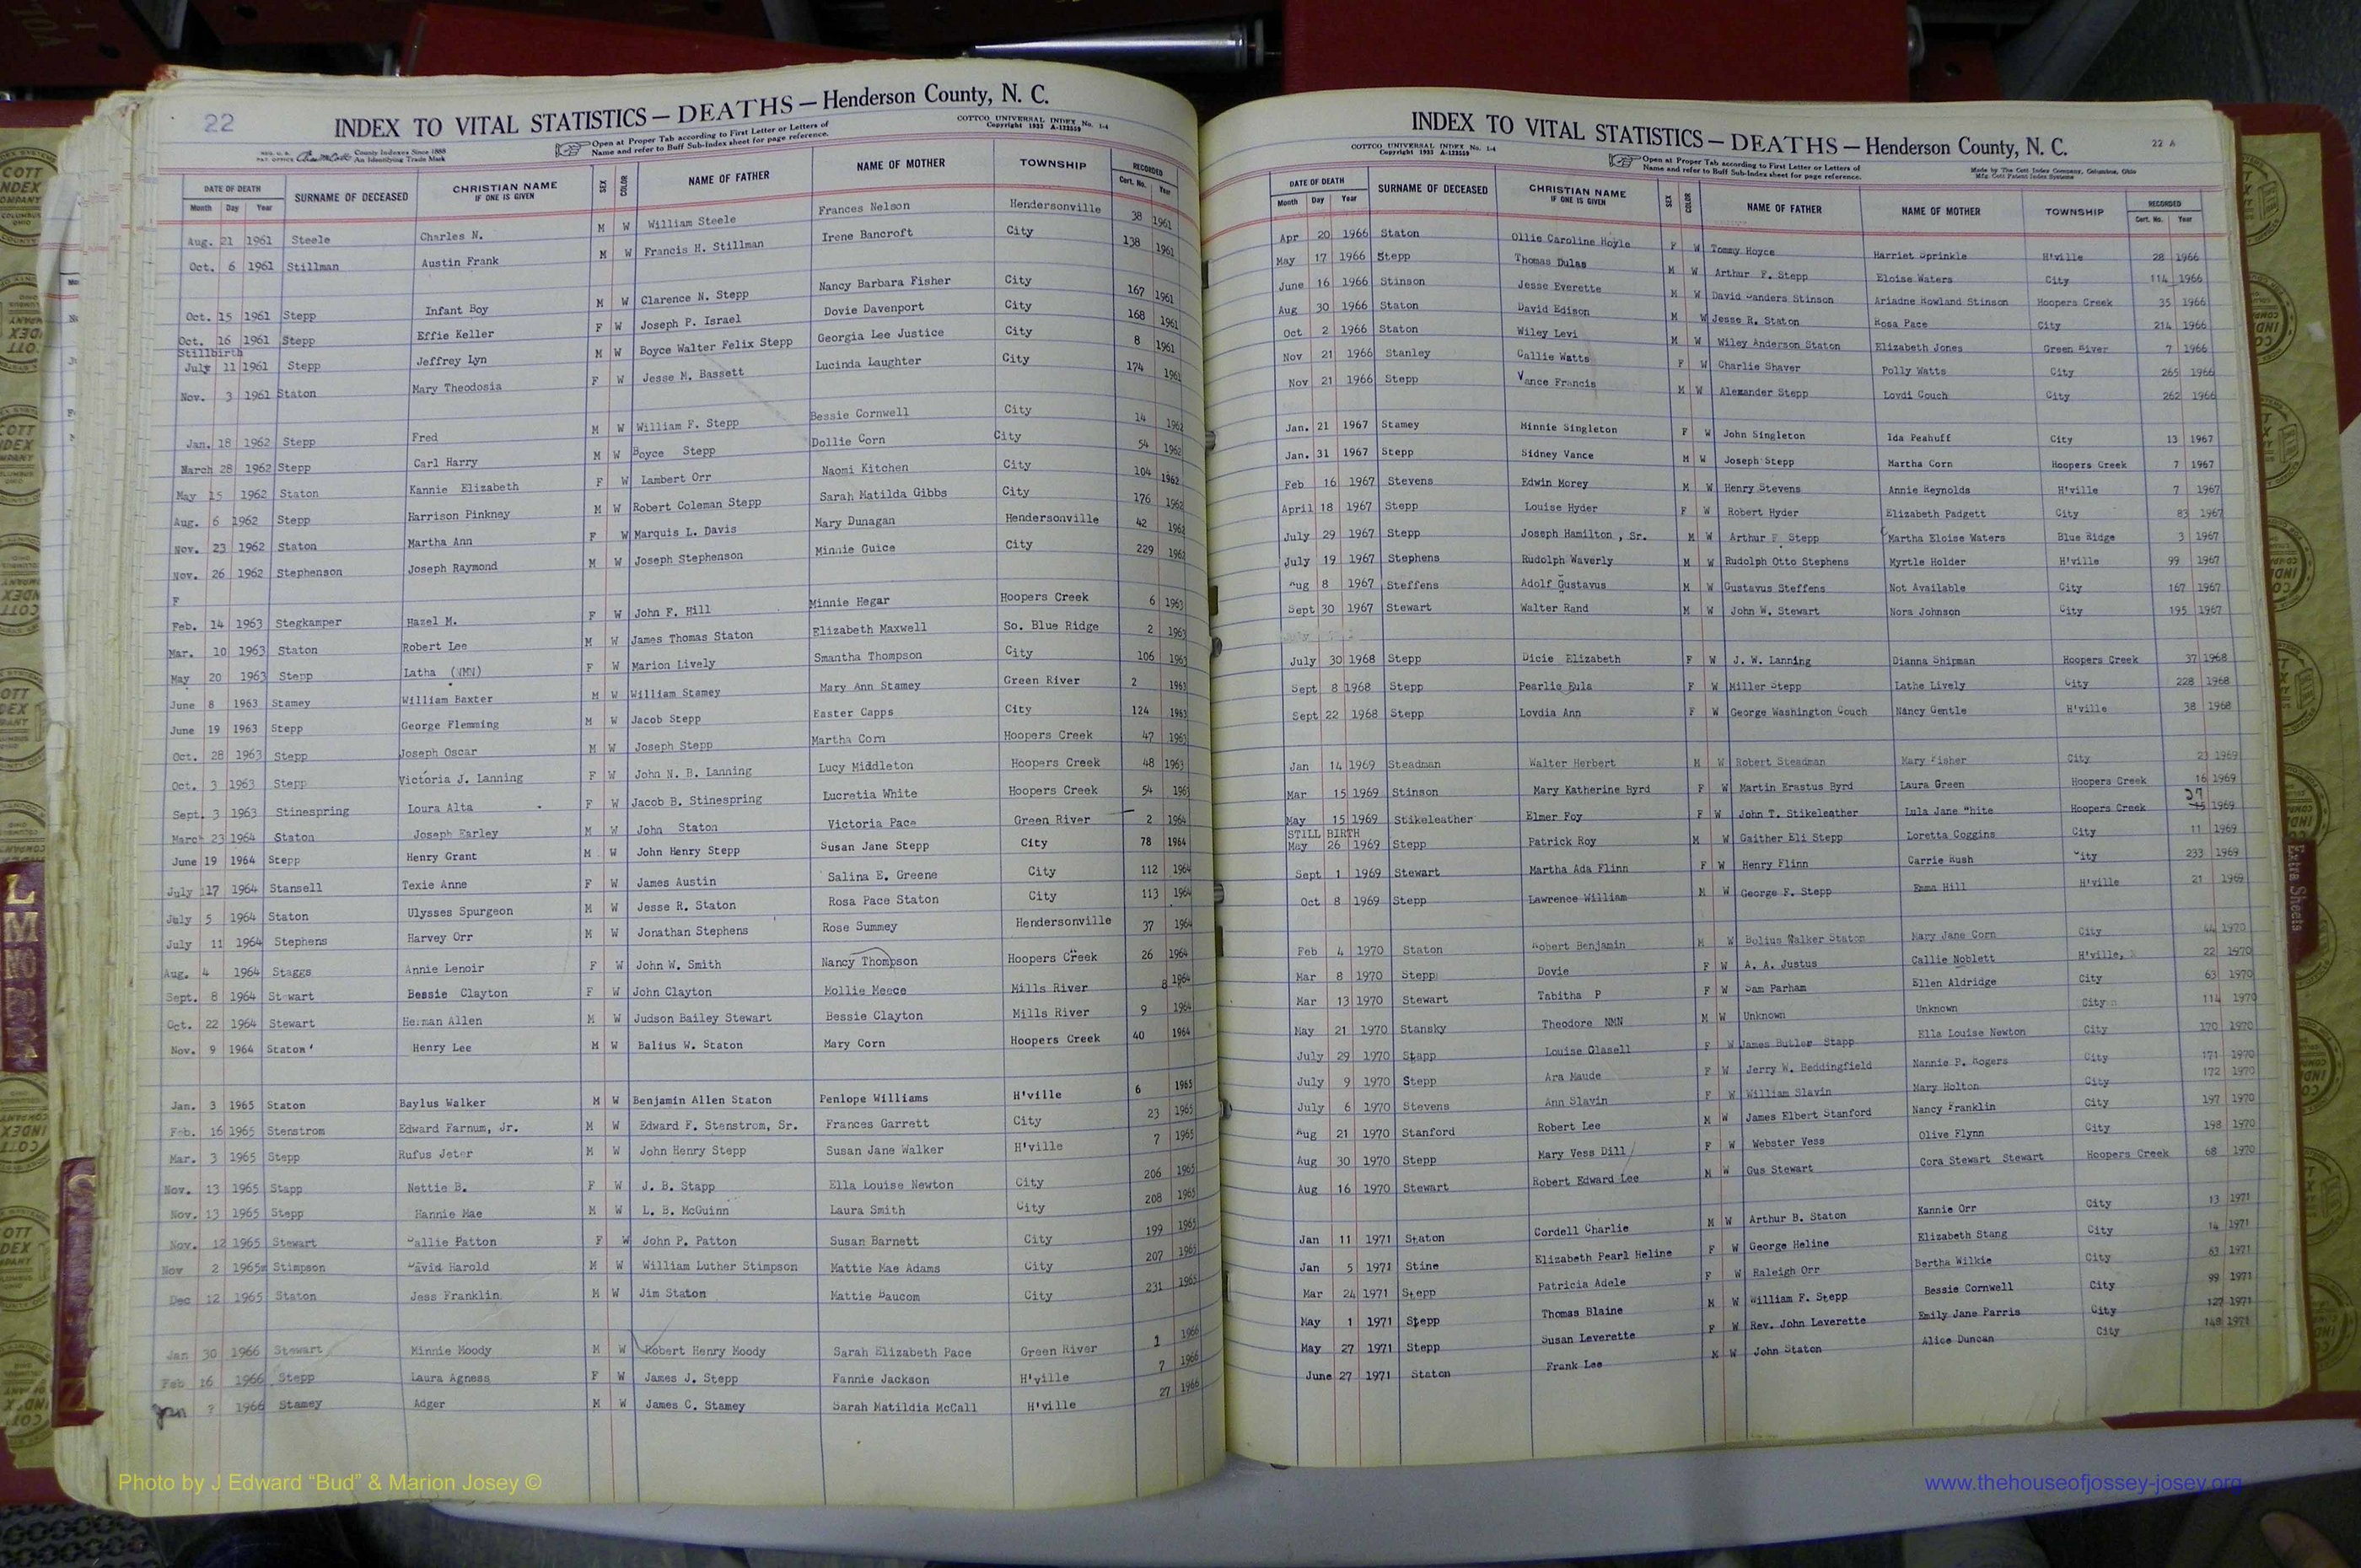 22
INDEX TO VITAL STATISTICS — DEATHS — Henderson County, N. C.
COTTCO UNIVERSAL INDEX No. 1-4
Copyright 1933 A-123559
County Indexes Since 1888
An Identifying Trade Mark
Open at Proper Tab according to First Letter or Letters of
Name and refer to Buff Sub-Index sheet for page reference.
DATE OF DEATH SURNAME OF DECEASED CHRISTIAN NAME IF ONE IS GIVEN SEX COLOR NAME OF FATHER NAME OF MOTHER TOWNSHIP RECORDED
Month Day Year Cert. No. Year
Aug. 21 1961 Steele Charles N. M W William Steele Frances Nelson Hendersonville 38 1961
Oct. 6 1961 Stillman Austin Frank M W Francis H. Stillman Irene Bancroft City 138 1961
Oct. 15 1961 Stepp Infant Boy M W Clarence N. Stepp Nancy Barbara Fisher City 167 1961
Oct. 16 1961 Stepp Effie Keller F W Joseph P. Israel Dovie Davenport City 168 1961
Stillbirth
July 11 1961 Stepp Jeffrey Lyn M W Boyce Walter Felix Stepp Georgia Lee Justice City 8 1961
Nov. 3 1961 Staton Mary Theodosia F W Jesse M. Bassett Lucinda Laughter City 174 1961
Jan. 18 1962 Stepp Fred M W William F. Stepp Bessie Cornwell City 14 1962
March 28 1962 Stepp Carl Harry M W Boyce Stepp Dollie Corn City 54 1962
May 15 1962 Staton Kannie Elizabeth F W Lambert Orr Naomi Kitchen City 104 1962
Aug. 6 1962 Stepp Harrison Pinkney M W Robert Coleman Stepp Sarah Matilda Gibbs City 176 1962
Nov. 23 1962 Staton Martha Ann F W Marquis L. Davis Mary Dunagan Hendersonville 42 1962
Nov. 26 1962 Stephenson Joseph Raymond M W Joseph Stephenson Minnie Guice City 229 1962
F
Feb. 14 1963 Stegkamper Hazel M. F W John F. Hill Minnie Hegar Hoopers Creek 6 1963
Mar. 10 1963 Staton Robert Lee M W James Thomas Staton Elizabeth Maxwell So. Blue Ridge 2 1963
May 20 1963 Stepp Latha (NMN) F W Marion Lively Smantha Thompson City 106 1963
June 8 1963 Stamey William Baxter M W William Stamey Mary Ann Stamey Green River 2 1963
June 19 1963 Stepp George Flemming M W Jacob Stepp Easter Capps City 124 1963
Oct. 28 1963 Stepp Joseph Oscar M W Joseph Stepp Martha Corn Hoopers Creek 47 1963
Oct. 3 1963 Stepp Victoria J. Lanning F W John N. B. Lanning Lucy Middleton Hoopers Creek 48 1963
Sept. 3 1963 Stinespring Loura Alta F W Jacob B. Stinespring Lucretia White Hoopers Creek 54 1963
March 23 1964 Staton Joseph Earley M W John Staton Victoria Pace Green River 2 1964
June 19 1964 Stepp Henry Grant M W John Henry Stepp Susan Jane Stepp City 78 1964
July 17 1964 Stansell Texie Anne F W James Austin Salina E. Greene City 112 1964
July 5 1964 Staton Ulysses Spurgeon M W Jesse R. Staton Rosa Pace Staton City 113 1964
July 11 1964 Stephens Harvey Orr M W Jonathan Stephens Rose Summey Hendersonville 37 1964
Aug. 4 1964 Staggs Annie Lenoir F W John W. Smith Nancy Thompson Hoopers Creek 26 1964
Sept. 8 1964 Stewart Bessie Clayton F W John Clayton Mollie Meece Mills River 8 1964
Oct. 22 1964 Stewart Herman Allen M W Judson Bailey Stewart Bessie Clayton Mills River 9 1964
Nov. 9 1964 Staton Henry Lee M W Balius W. Staton Mary Corn Hoopers Creek 40 1964
Jan. 3 1965 Staton Baylus Walker M W Benjamin Allen Staton Penlope Williams H'ville 6 1965
Feb. 16 1965 Stenstrom Edward Farnum, Jr. M W Edward F. Stenstrom, Sr. Frances Garrett City 23 1965
Mar. 3 1965 Stepp Rufus Jeter M W John Henry Stepp Susan Jane Walker H'ville 7 1965
Nov. 13 1965 Stapp Nettie B. F W J. B. Stapp Ella Louise Newton City 206 1965
Nov. 13 1965 Stepp Hannie Mae M W L. B. McGuinn Laura Smith City 208 1965
Nov. 12 1965 Stewart Sallie Patton F W John P. Patton Susan Barnett City 199 1965
Nov 2 1965 Stimpson David Harold M W William Luther Stimpson Mattie Mae Adams City 207 1965
Dec 12 1965 Staton Jess Franklin M W Jim Staton Mattie Baucom City 231 1965
Jan 30 1966 Stewart Minnie Moody M W Robert Henry Moody Sarah Elizabeth Pace Green River 1 1966
Feb 16 1966 Stepp Laura Agness F W James J. Stepp Fannie Jackson H'ville 7 1966
Jan ? 1966 Stamey Adger M W James C. Stamey Sarah Matildia McCall H'ville 27 1966
INDEX TO VITAL STATISTICS — DEATHS — Henderson County, N. C.
22 A
COTTCO UNIVERSAL INDEX No. 1-4
Copyright 1933 A-123559
Open at Proper Tab according to First Letter or Letters of
Name and refer to Buff Sub-Index sheet for page reference.
Made by The Cott Index Company, Columbus, Ohio
DATE OF DEATH SURNAME OF DECEASED CHRISTIAN NAME IF ONE IS GIVEN SEX COLOR NAME OF FATHER NAME OF MOTHER TOWNSHIP RECORDED
Month Day Year Cert. No. Year
Apr 20 1966 Staton Ollie Caroline Hoyle F W Tommy Hoyce Harriet Sprinkle H'ville 28 1966
May 17 1966 Stepp Thomas Dulas M W Arthur F. Stepp Eloise Waters City 114 1966
June 16 1966 Stinson Jesse Everette M W David Sanders Stinson Ariadne Howland Stinson Hoopers Creek 35 1966
Aug 30 1966 Staton David Edison M W Jesse R. Staton Rosa Pace City 214 1966
Oct 2 1966 Staton Wiley Levi M W Wiley Anderson Staton Elizabeth Jones Green River 7 1966
Nov 21 1966 Stanley Callie Watts F W Charlie Shaver Polly Watts City 265 1966
Nov 21 1966 Stepp Vance Francis M W Alexander Stepp Lovdi Couch City 262 1966
Jan. 21 1967 Stamey Minnie Singleton F W John Singleton Ida Peahuff City 13 1967
Jan. 31 1967 Stepp Sidney Vance M W Joseph Stepp Martha Corn Hoopers Creek 7 1967
Feb 16 1967 Stevens Edwin Morey M W Henry Stevens Annie Reynolds H'ville 7 1967
April 18 1967 Stepp Louise Hyder F W Robert Hyder Elizabeth Padgett City 83 1967
July 29 1967 Stepp Joseph Hamilton, Sr. M W Arthur F Stepp Martha Eloise Waters Blue Ridge 3 1967
July 19 1967 Stephens Rudolph Waverly M W Rudolph Otto Stephens Myrtle Holder H'ville 99 1967
Aug 8 1967 Steffens Adolf Gustavus M W Gustavus Steffens Not Available City 167 1967
Sept 30 1967 Stewart Walter Rand M W John W. Stewart Nora Johnson City 195 1967
July 30 1968 Stepp Dicie Elizabeth F W J. W. Lanning Dianna Shipman Hoopers Creek 37 1968
Sept 8 1968 Stepp Pearlie Eula F W Miller Stepp Lathe Lively City 228 1968
Sept 22 1968 Stepp Lovdia Ann F W George Washington Couch Nancy Gentle H'ville 38 1968
Jan 14 1969 Steadman Walter Herbert M W Robert Steadman Mary Fisher City 23 1969
Mar 15 1969 Stinson Mary Katherine Byrd F W Martin Erastus Byrd Laura Green Hoopers Creek 16 1969
May 15 1969 Stikeleather Elmer Foy F W John T. Stikeleather Lula Jane "hite Hoopers Creek 37 1969
STILL BIRTH
May 26 1969 Stepp Patrick Roy M W Gaither Eli Stepp Loretta Coggins City 11 1969
Sept 1 1969 Stewart Martha Ada Flinn F W Henry Flinn Carrie Rush City 233 1969
Oct 8 1969 Stepp Lawrence William M W George F. Stepp Emma Hill H'ville 21 1969
Feb 4 1970 Staton Robert Benjamin M W Bolius Walker Staton Mary Jane Corn City 44 1970
Mar 8 1970 Stepp Dovie F W A. A. Justus Callie Noblett H'ville, 22 1970
Mar 13 1970 Stewart Tabitha P F W Sam Parham Ellen Aldridge City 63 1970
May 21 1970 Stansky Theodore NMN M W Unknown Unknown City 114 1970
July 29 1970 Stapp Louise Glasell F W James Butler Stapp Ella Louise Newton City 170 1970
July 9 1970 Stepp Ara Maude F W Jerry W. Beddingfield Nannie P. Rogers City 171 1970
July 6 1970 Stevens Ann Slavin F W William Slavin Mary Holton City 172 1970
Aug 21 1970 Stanford Robert Lee M W James Elbert Stanford Nancy Franklin City 197 1970
Aug 30 1970 Stepp Mary Vess Dill F W Webster Vess Olive Flynn City 198 1970
Aug 16 1970 Stewart Robert Edward Lee M W Gus Stewart Cora Stewart Stewart Hoopers Creek 68 1970
Jan 11 1971 Staton Cordell Charlie M W Arthur B. Staton Kannie Orr City 13 1971
Jan 5 1971 Stine Elizabeth Pearl Heline F W George Heline Elizabeth Stang City 14 1971
Mar 24 1971 Stepp Patricia Adele F W Raleigh Orr Bertha Wilkie City 63 1971
May 1 1971 Stepp Thomas Blaine M W William F. Stepp Bessie Cornwell City 99 1971
May 27 1971 Stepp Susan Leverette F W Rev. John Leverette Emily Jane Parris City 127 1971
June 27 1971 Staton Frank Lee M W John Staton Alice Duncan City 148 1971
Extra Sheets
Photo by J Edward “Bud” & Marion Josey ©
www.thehouseofjossey-josey.org